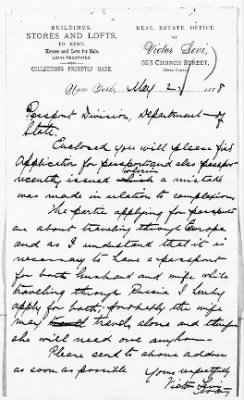 BUILDINGS,
STORES AND LOFTS,
TO RENT.
Houses and Lots for Sale.
LOANS NEGOTIATED.
COLLECTIONS PROMPTLY MADE.
REAL ESTATE OFFICE
OF
Victor Levi,
323 CHURCH STREET,
New York, May 2 1888
Passport Division, Department of
State,
Enclosed you will please find
application for passport and also passport
recently issued wherein a mistake
was made in relation to complexion.
The parties applying for passports
are about traveling through Europe
and as I understand that it is
necessary to have a passport
for both husband and wife while
traveling through Russia I hereby
apply for both, probably the wife
may travel alone and then
she will need one anyhow.
Please send to above address
as soon as possible
Yours respectfully
Victor Levi
Notary